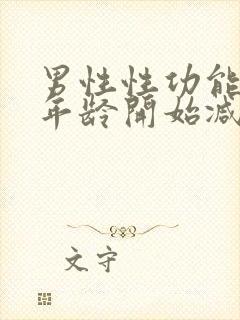 男性性功能
年龄開始减
文守